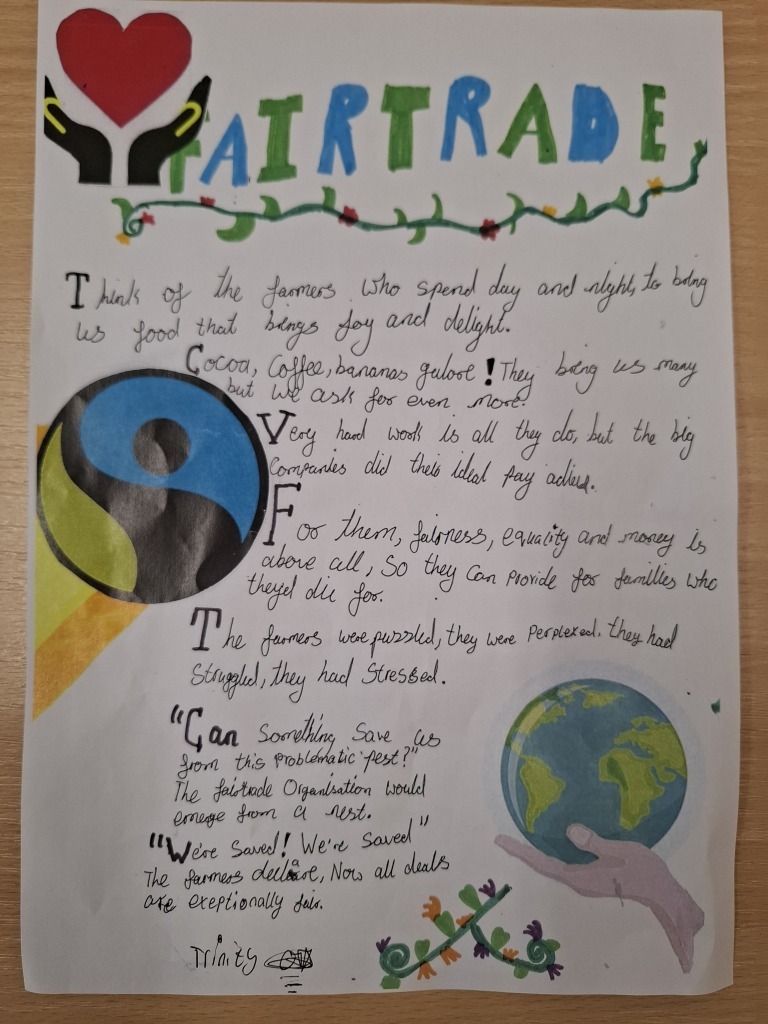 FAIRTRADE
Think of the farmers who spend day and night, to bring
us food that brings joy and delight.
Cocoa, Coffee, bananas galore! They bring us many
but we ask for even more.
Very hard work is all they do, but the big
companies did their ideal pay adieu.
For them, fairness, equality and money is
above all, So they can provide for families who
theyed die for.
The farmers were puzzled, they were perplexed. they had
Struggled, they had Stressed.
"Can something save us
from this problematic pest?"
The fairtrade Organisation would
emerge from a nest.
"We're saved! We're saved"
The farmers declare, Now all deals
are exeptionally fair.
Trinity